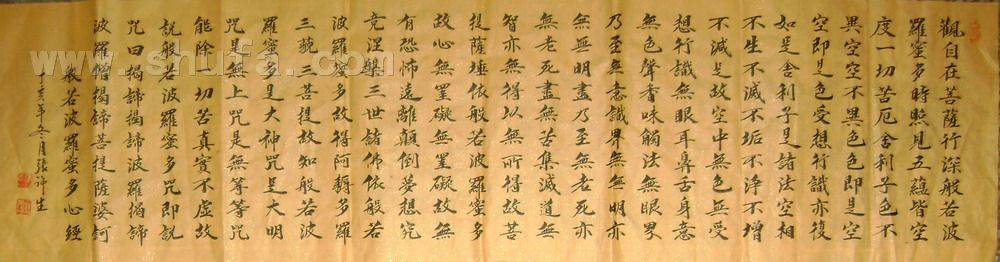 觀自在菩薩行深般若波
羅蜜多時照見五蘊皆空
度一切苦厄舍利子色不
異空空不異色色即是空
空即是色受想行識亦復
如是舍利子是諸法空相
不生不滅不垢不淨不增
不減是故空中無色無受
想行識無眼耳鼻舌身意
無色聲香味觸法無眼界
乃至無意識界無無明亦
無無明盡乃至無老死亦
無老死盡無苦集滅道無
智亦無得以無所得故菩
提薩埵依般若波羅蜜多
故心無罣礙無罣礙故無
有恐怖遠離顛倒夢想究
竟涅槃三世諸佛依般若
波羅蜜多故得阿耨多羅
三藐三菩提故知般若波
羅蜜多是大神咒是大明
咒是無上咒是無等等咒
能除一切苦真實不虛故
說般若波羅蜜多咒即說
咒曰揭諦揭諦波羅揭諦
波羅僧揭諦菩提薩婆訶
般若波羅蜜多心經
亥年冬月張
www.shufa.com